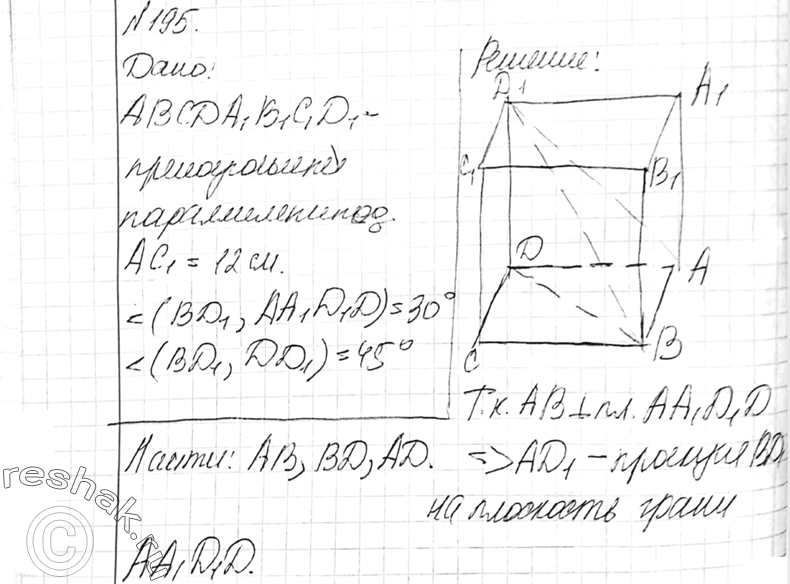 №195.
Дано:
ABCDA₁B₁C₁D₁-
прямоугольный
параллелепипед.
AC₁ = 12 см.
<(BD₁, AA₁D₁D)=30°
<(BD₁, DD₁)=45°
Найти: AB, BD, AD.
Решение:
D₁
A₁
C₁
B₁
D
A
C
B
Т.к. AB⊥пл. AA₁D₁D
=>AD₁ - проекция BD₁
на плоскость грани
AA₁D₁D.
reshak.ru
©